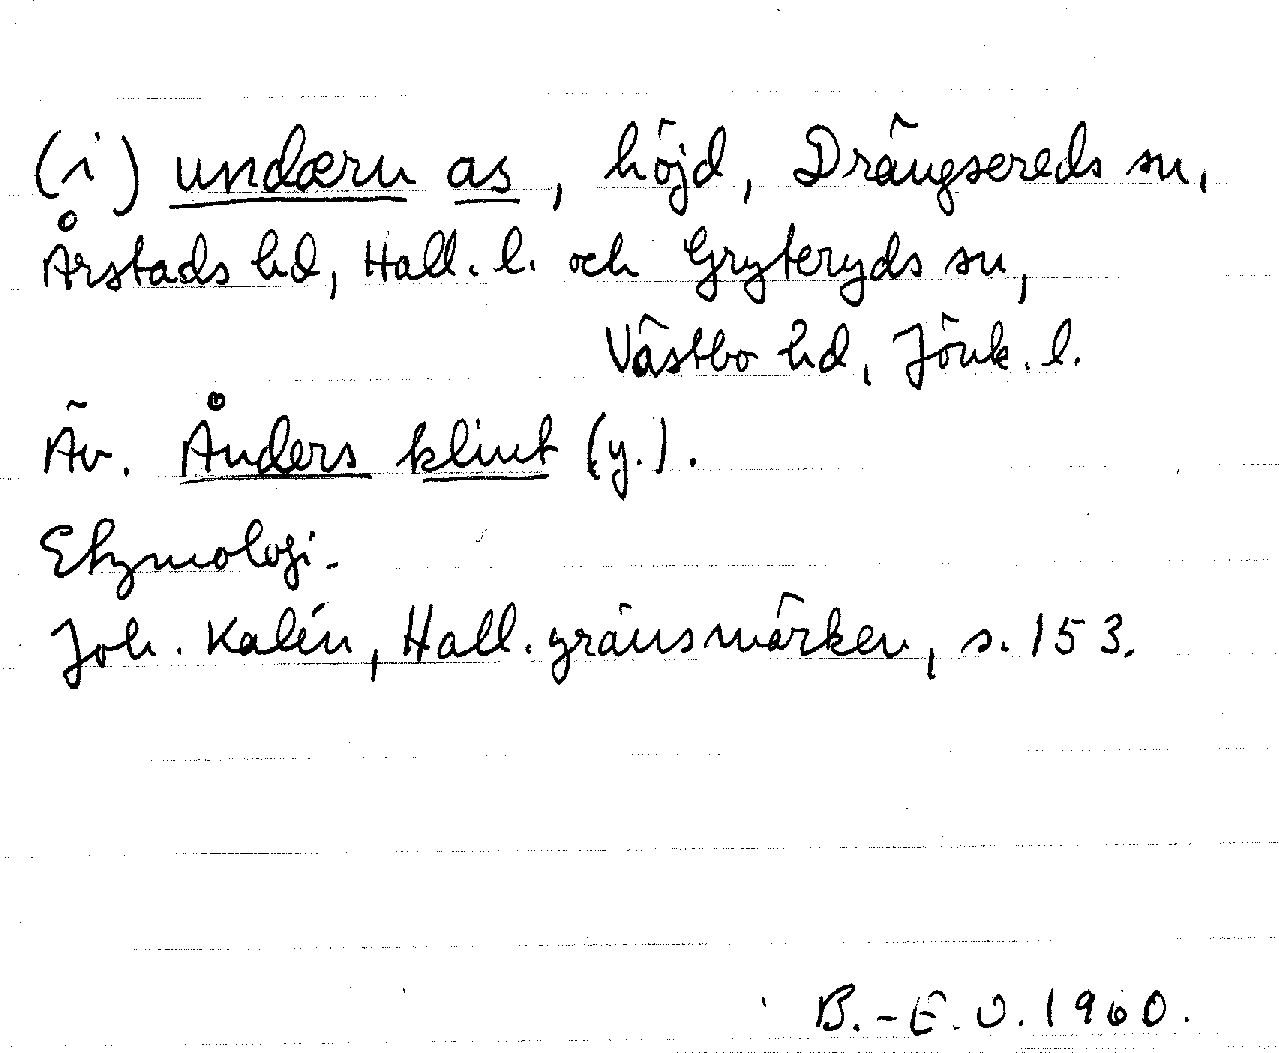 (i) undærn as, höjd, Drängsereds sn,
Årstads hd, Hall. l. och Gryteryds sn,
Västbo hd, Jönk. l.
Äv. Ånders klint (y.).
Etymologi.
Joh. Kalén, Hall. gränsmärken, s. 153.
B.-E. O. 1960.